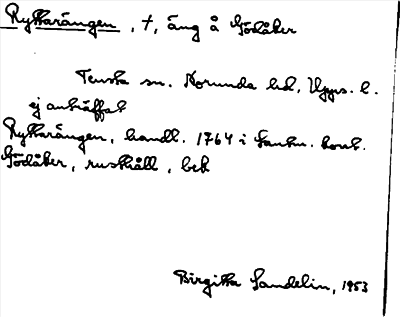 Ryttarängen, †, äng å Gödåker
Tensta sn. Norunda hd, Upps. l.
ej anträffat
Ryttarängen, handl. 1764 i Lantm. kont.
Gödåker, rusthåll, bek
Birgitta Sandelin, 1953